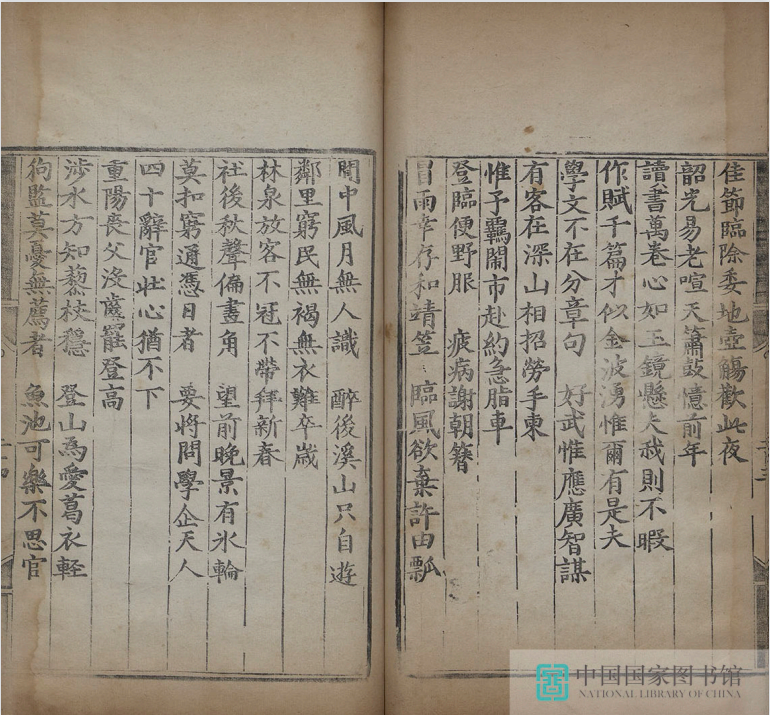 佳節臨除委地壺觴歡此夜
韶光易老喧天簫鼓憶前年
讀書萬卷心如玉鏡懸夫我則不暇
作賦千篇才似金波湧惟爾有是夫
學文不在分章句　好武惟應廣智謀
有客在深山相招勞手柬
惟予羈鬧市赴約急脂車
登臨便野服　疲病謝朝簪
冒雨幸存和靖笠　臨風欲棄許由瓢
閒中風月無人識　醉後溪山只自遊
鄰里窮民無褐無衣難卒歲
林泉放客不冠不帶拜新春
社後秋聲偏畫角　望前晚景有氷輪
莫扣窮通憑日者　要將問學企天人
四十辭官壯心猶不下
重陽喪父沒齒罷登高
涉水方知藜杖穩　登山為愛葛衣輕
狗監莫憂無薦者　魚池可樂不思官
中国国家图书馆
NATIONAL LIBRARY OF CHINA